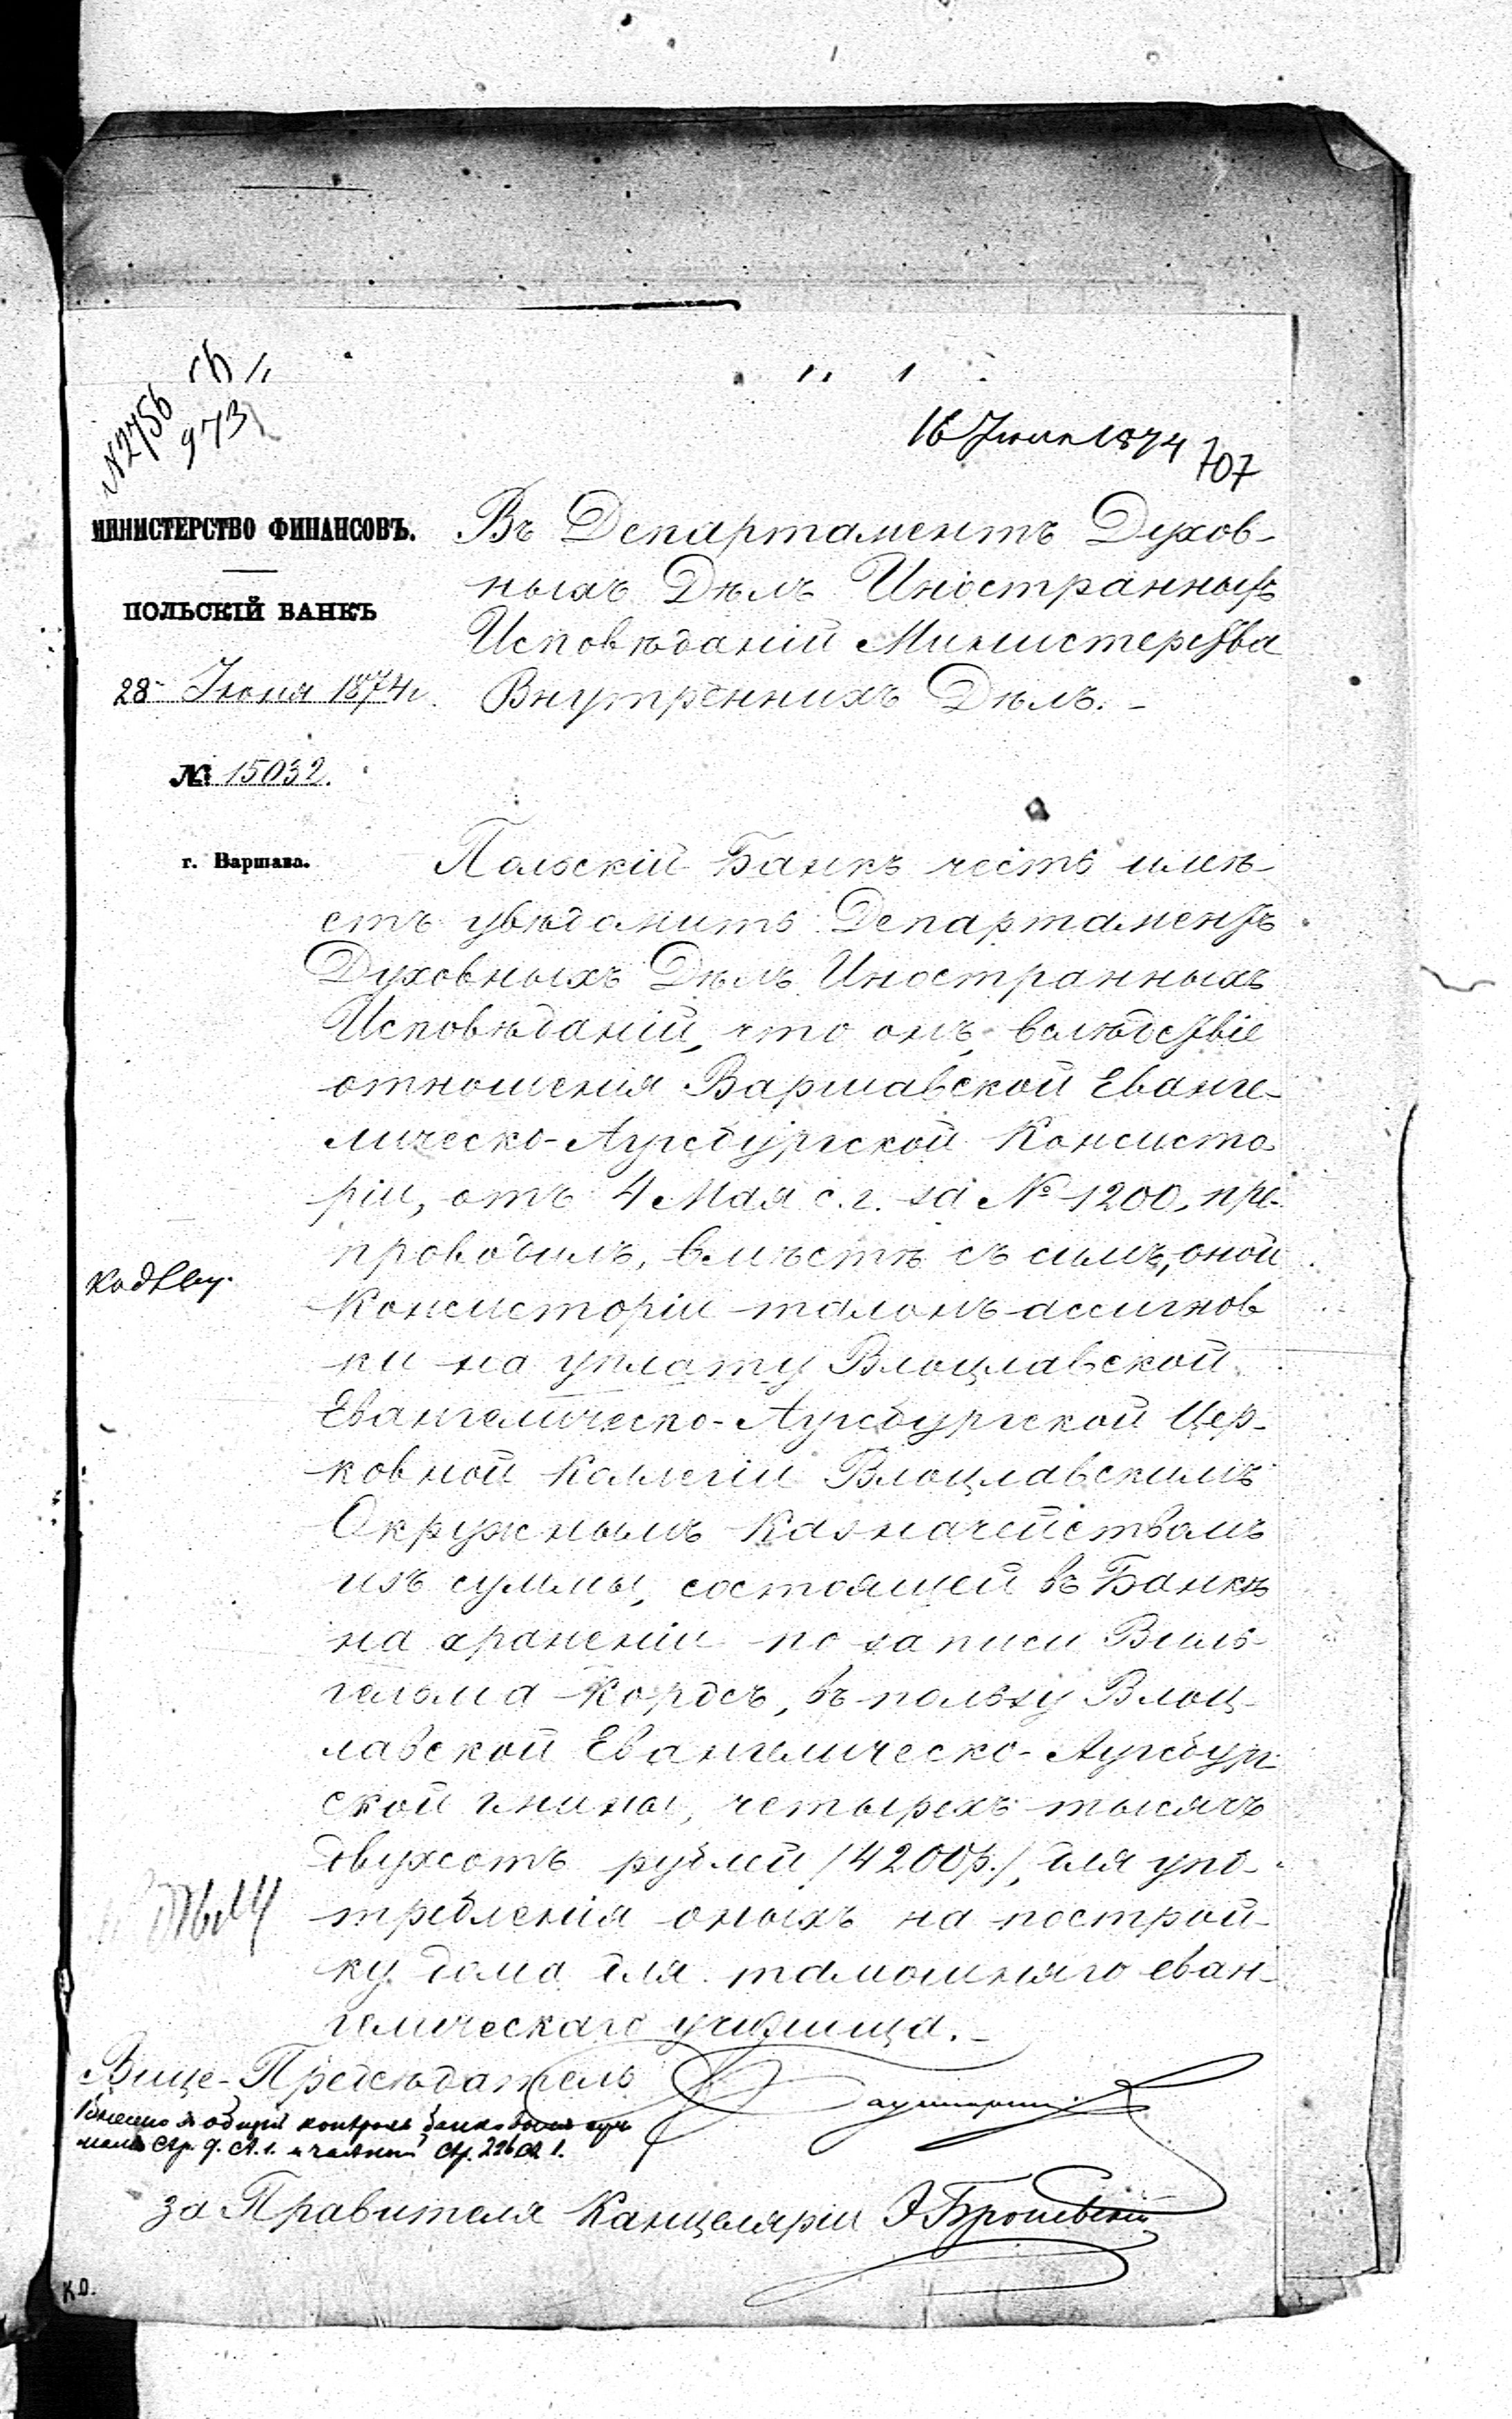 № 2756
973
16 Июля 1874
707
МИНИСТЕРСТВО ФИНАНСОВЪ.
ПОЛЬСКІЙ БАНКЪ
28 Іюня 1874 г.
№ 15032.
г. Варшава.
Въ Департаментъ Духов-
ныхъ Дѣлъ Иностранныхъ
Исповѣданій Министерства
Внутреннихъ Дѣлъ. -
Польскій Банкъ честь имѣ-
етъ увѣдомить Департаментъ
Духовныхъ Дѣлъ Иностранныхъ
Исповѣданій, что онъ, вслѣдствіе
отношенія Варшавской Еванге-
лическо-Аугсбургской Консисто
ріи, отъ 4 Мая с. г. за № 1200, пре-
проводилъ, вмѣстѣ съ симъ, оной
Консисторіи талонъ ассигнов
ки на уплату Влоцлавской
Евангелическо-Аугсбургской Цер-
ковной Коллегіи Влоцлавскимъ
Окружнымъ Казначействомъ
изъ суммы, состоящей въ Банкѣ
на храненіи по записи Виль-
гельма Кордсъ, въ пользу Влоц-
лавской Евангелическо-Аугсбург-
ской гмины, четырехъ тысячъ
двухсотъ рублей /4200 р./, для упо-
требленія оныхъ на построй-
ку дома для тамошняго еван-
гелическаго училища. -
Къ дѣлу
Вице-Предсѣдатель
Внесено в общій контроль банковыхъ сум
за Правителя Канцеляріи
К.О.